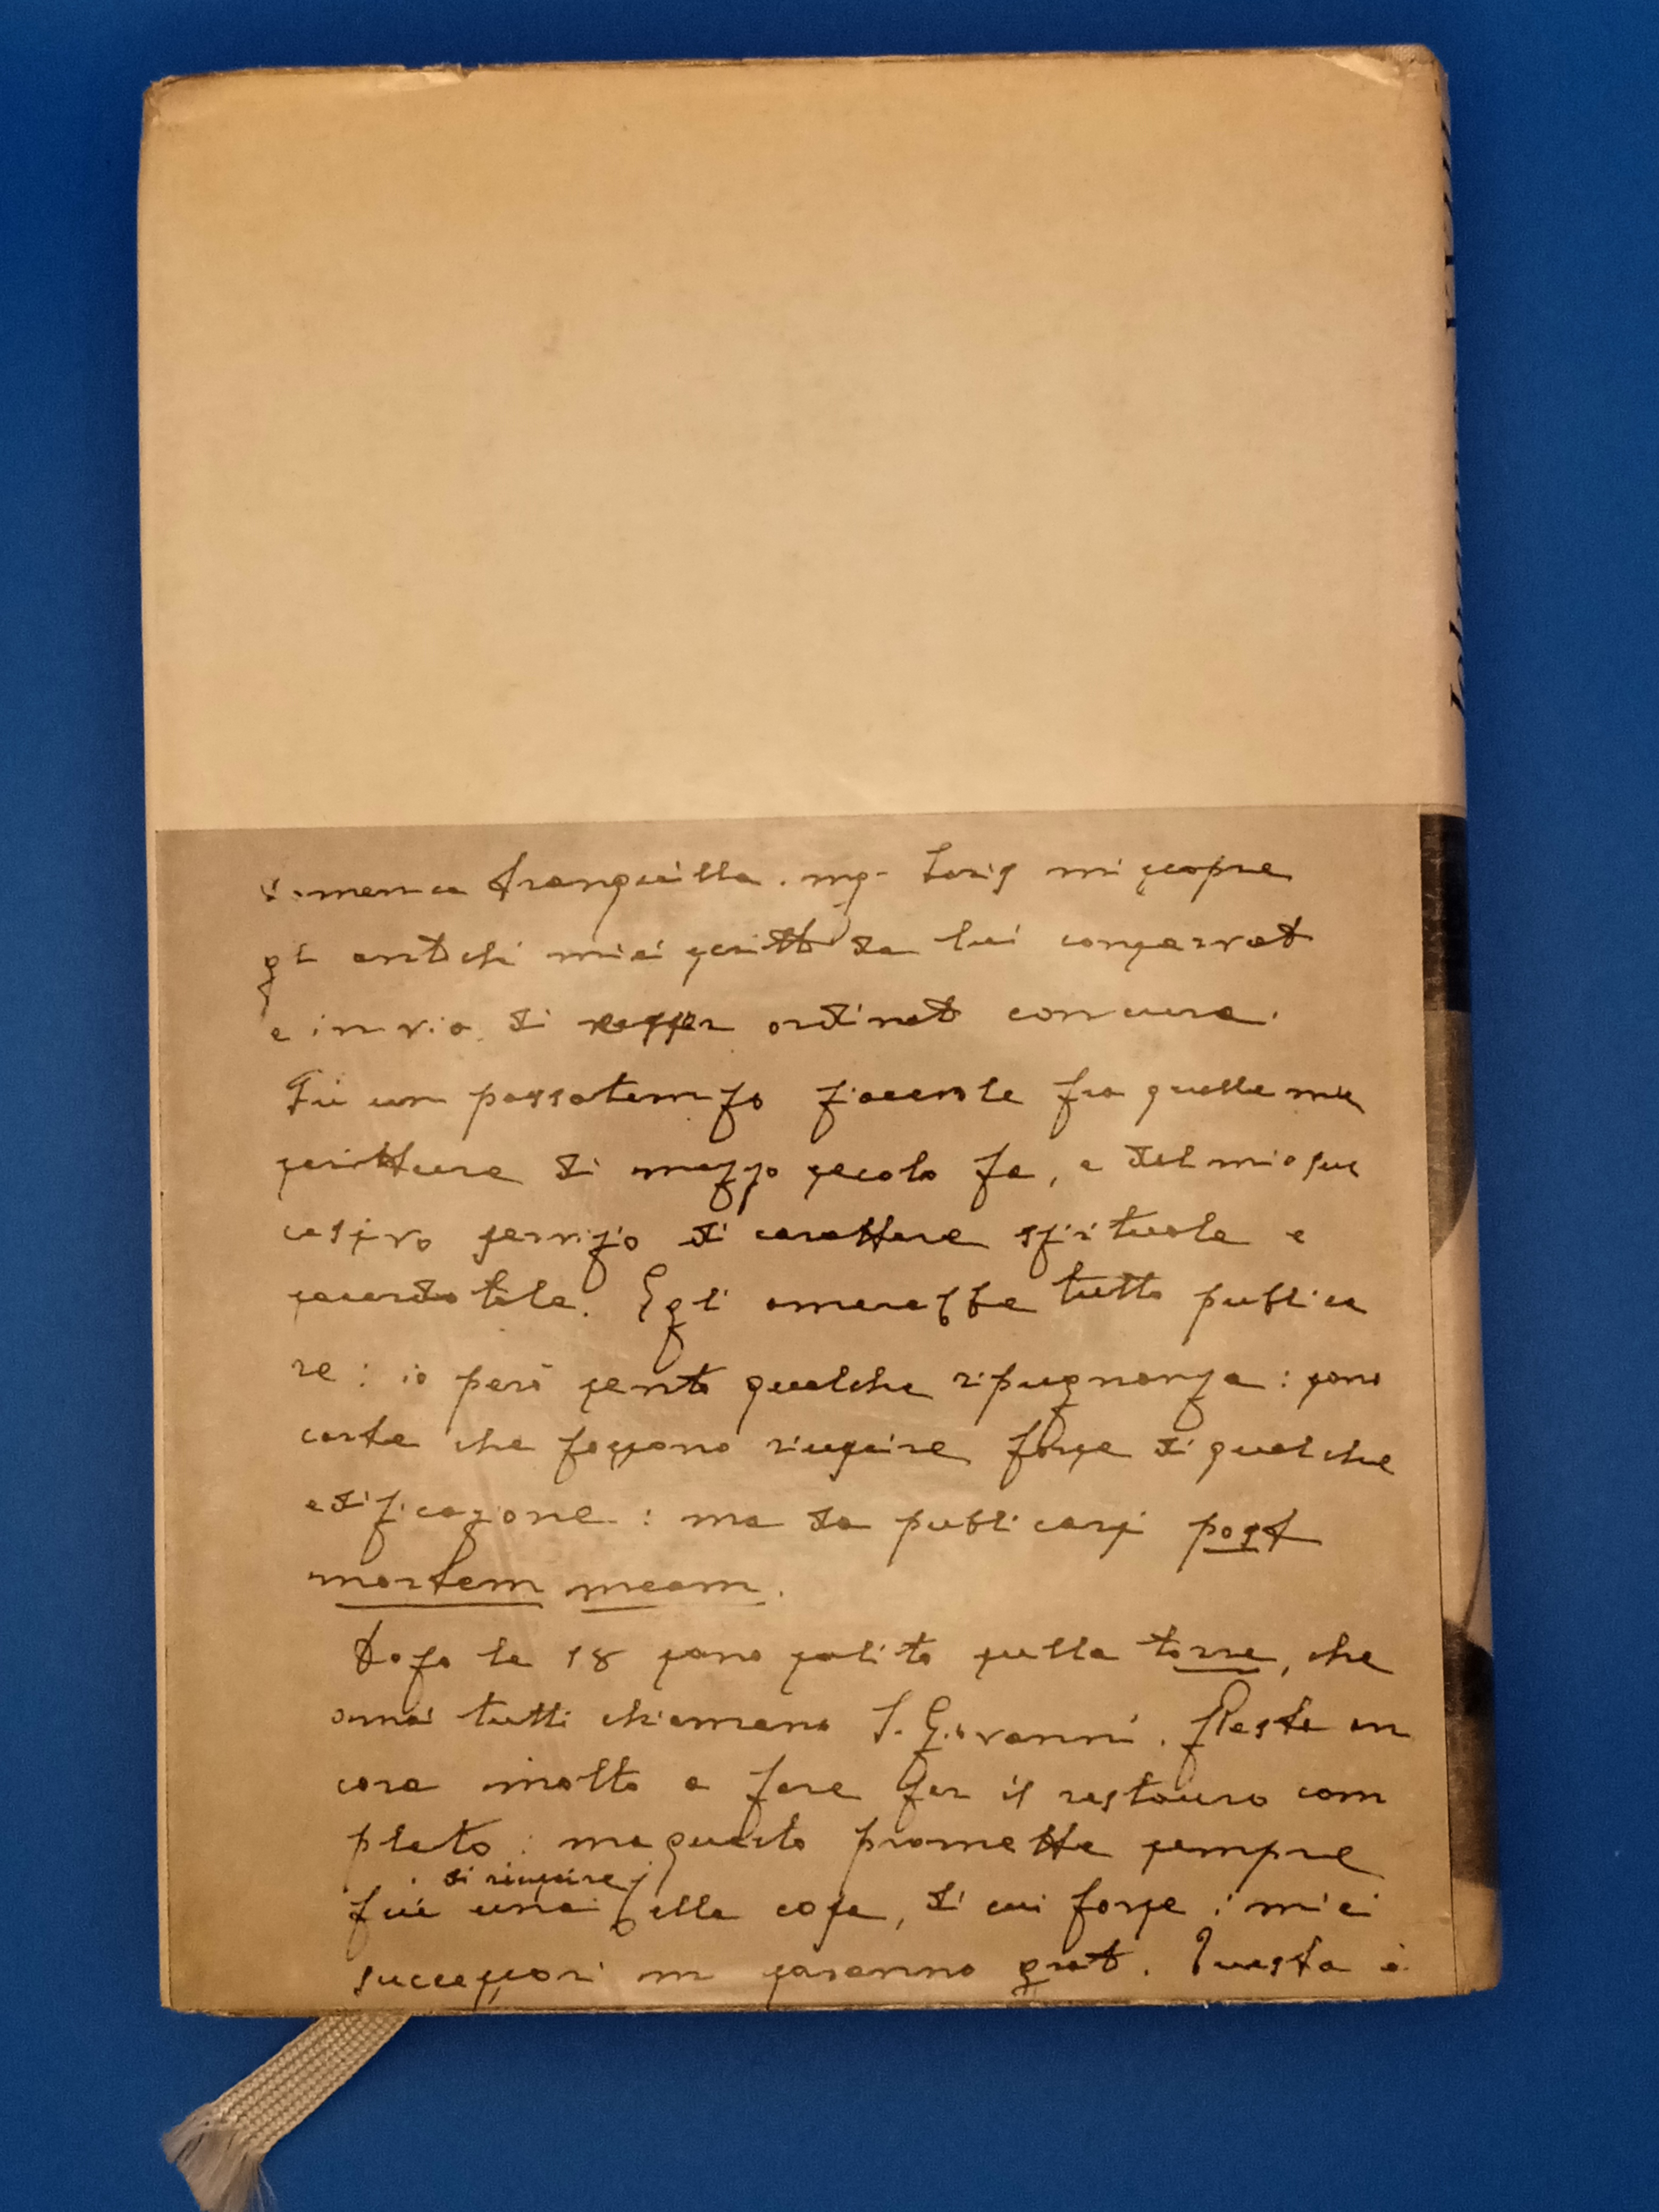 Domenica tranquilla. mgr Loris mi scopre
gli antichi miei scritti da lui conservati
e in via di esser ordinati con cura.
Fu un passatempo piacevole fra quelle mie
scritture di mezzo secolo fa, e del mio suc
cessivo servizio di carattere spirituale e
sacerdotale. Egli amerebbe tutto publica
re: io però sento qualche ripugnanza: sono
carte che possono riuscire forse di qualche
edificazione: ma da publicarsi post
mortem meam.
Dopo le 18 sono salito sulla torre, che
ormai tutti chiamano S. Giovanni. Resta an
cora molto a fare per il restauro com
pleto: ma questo promette sempre
di riuscire
più una bella cosa, di cui forse i miei
successori mi saranno grati. Questa è